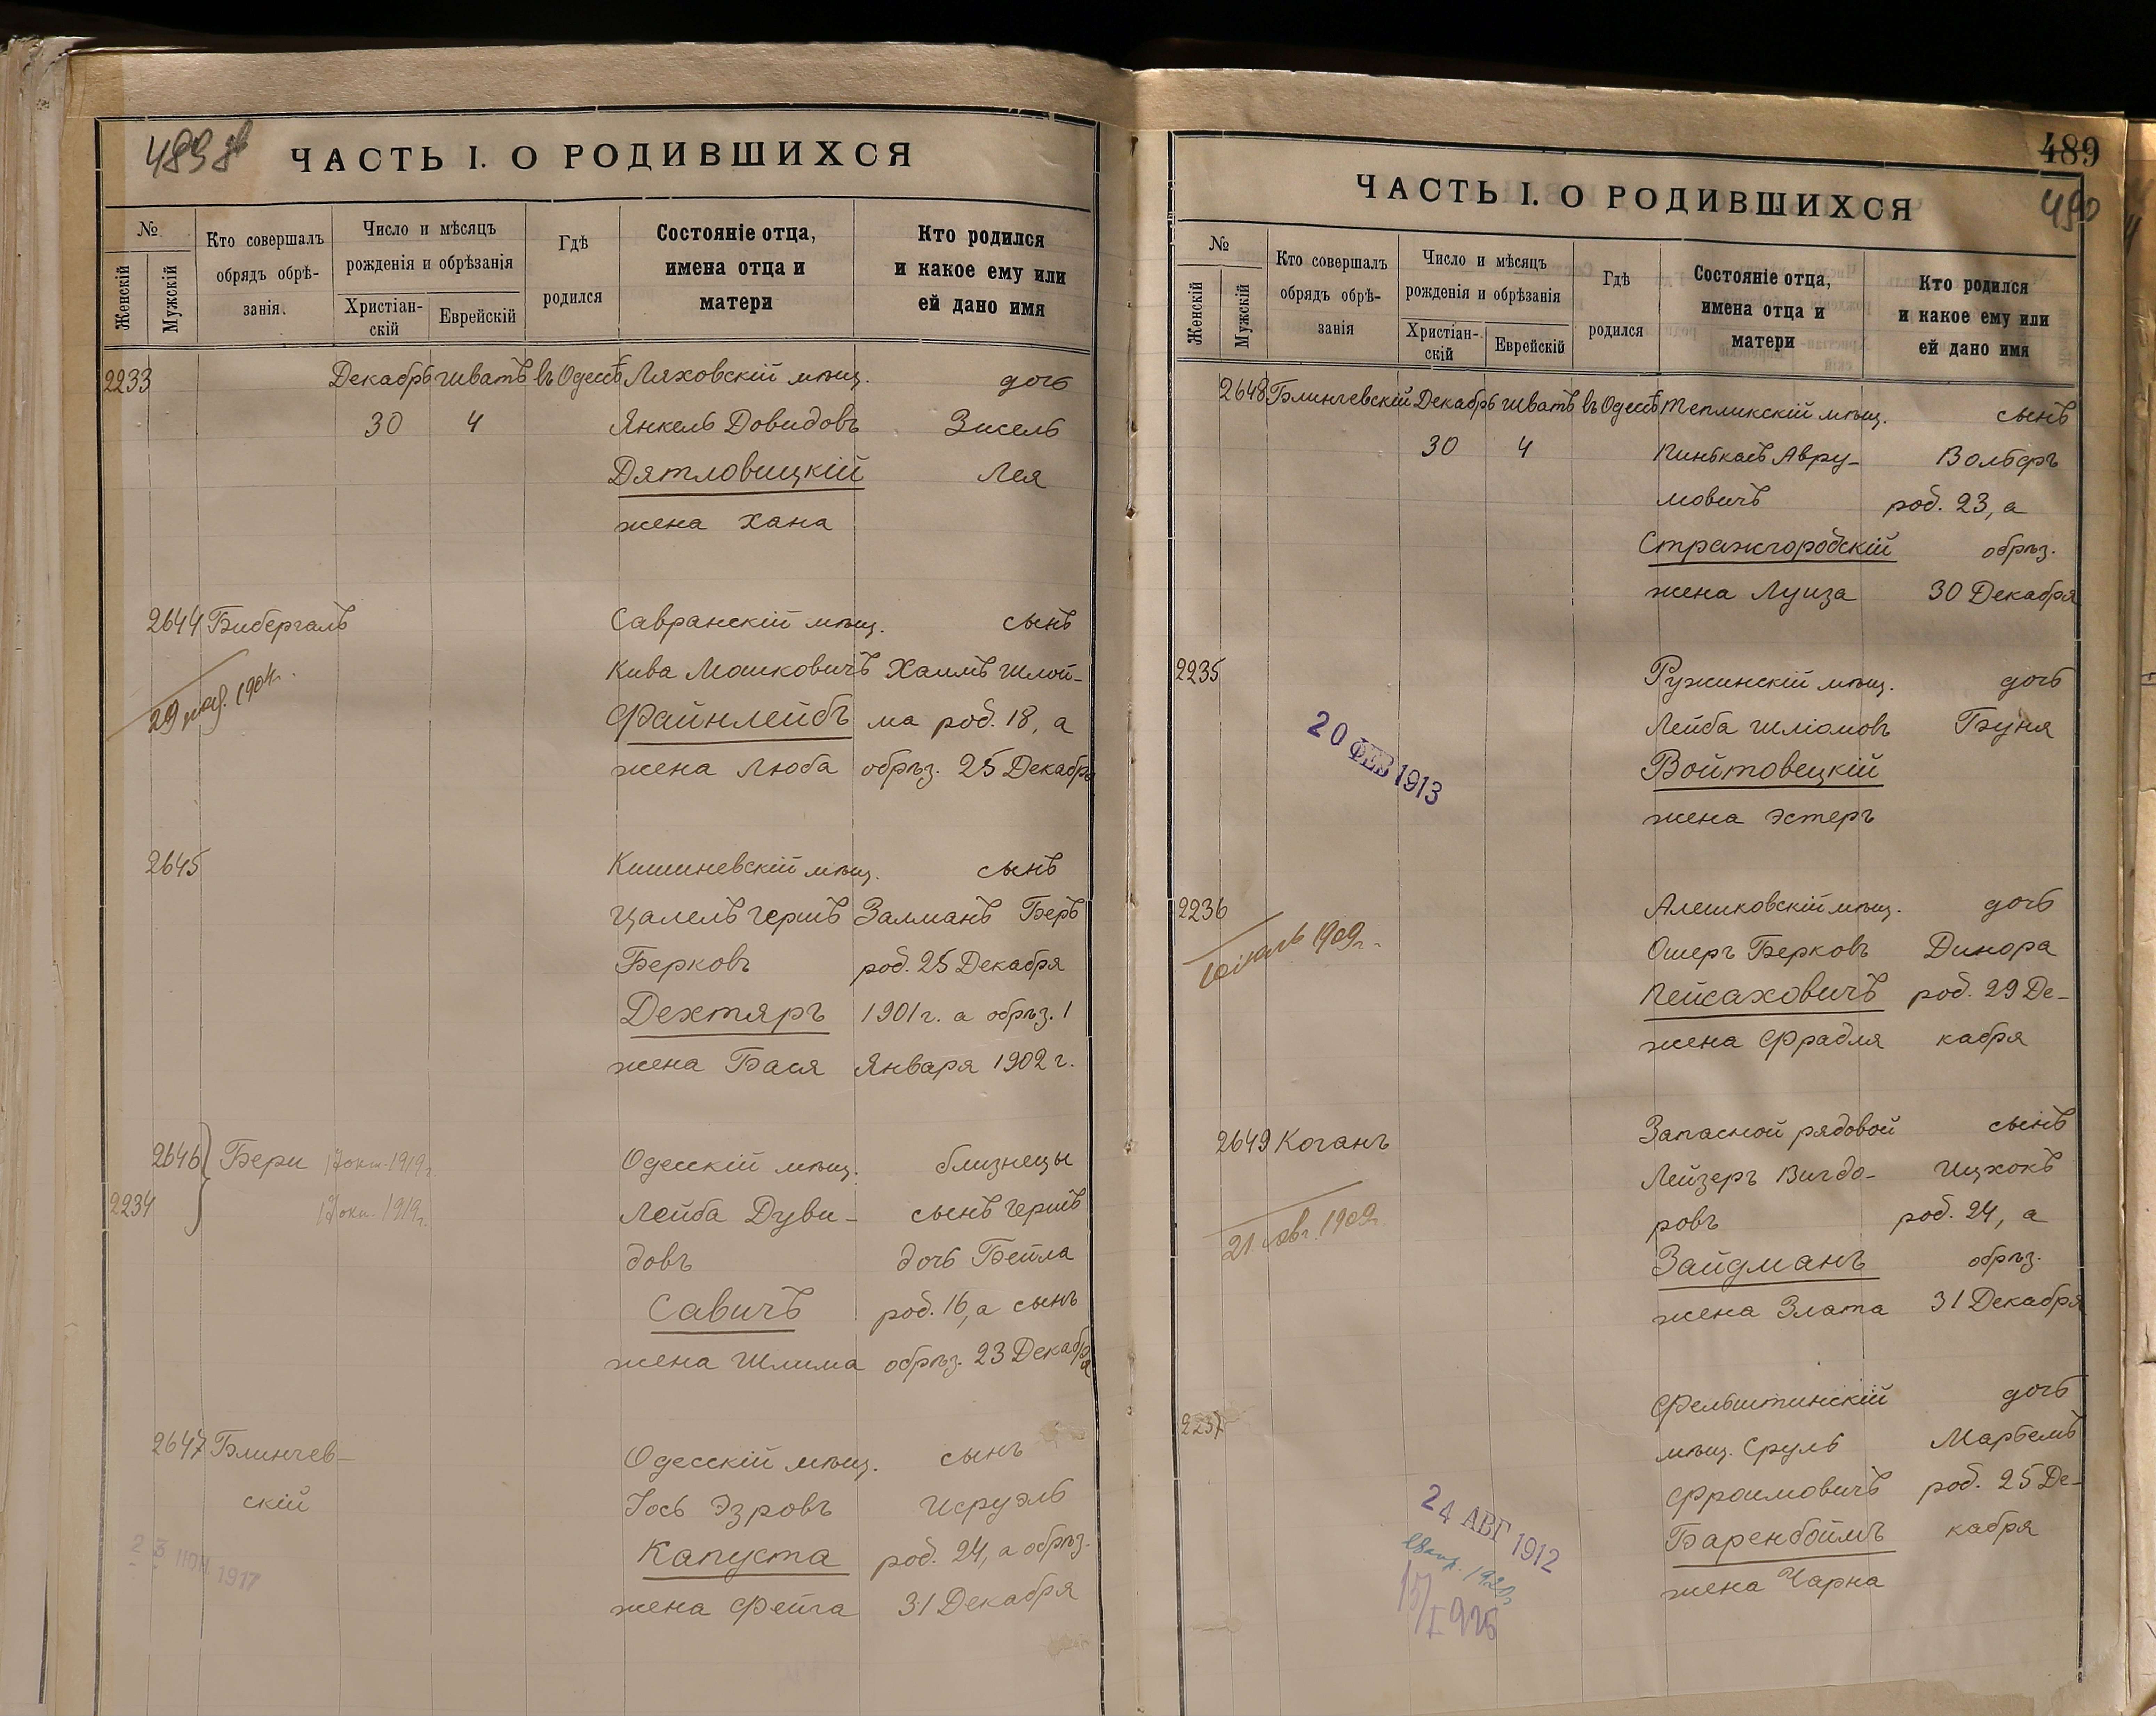 ЧАСТЬ I. О РОДИВШИХСЯ
№
Женскій
Мужскій
Кто совершалъ
обрядъ обрѣ-
занія.
Число и мѣсяцъ
рожденія и обрѣзанія
Христіан-
скій
Еврейскій
Гдѣ
родился
Состояніе отца,
имена отца и
матери
Кто родился
и какое ему или
ей дано имя
2233 Декабрь Шватъ въ Одессѣ Ляховскій мѣщ. дочь
30 4 Янкель Довидовъ Зисель
Дятловицкій Лея
жена Хана
2644 Бибергалъ Савранскій мѣщ. сынъ
Кива Мошковичъ Хаимъ Шлой-
29 1904г.
Файнлейбъ ма род. 18, а
жена Люба обрѣз. 25 Декабря
2645 Кишиневскій мѣщ. сынъ
Цалелъ Гершъ Залманъ Беръ
Берковъ род. 25 Декабря
Дехтяръ 1901 г. а обрѣз. 1
жена Бася Января 1902 г.
2646 Бери 17 окт. 1919г. Одесскій мѣщ. близнецы
2234 17 окт. 1919г. Лейба Дуви- сынъ Гершъ
довъ дочь Бейла
Савичъ род. 16, а сынъ
жена Шлима обрѣз. 23 Декабря
2647 Блинчев- Одесскій мѣщ. сынъ
скій Іось Эзровъ Исруэль
23 ІЮН. 1917 Капуста род. 24, а обрѣз.
жена Фейга 31 Декабря
489
490
ЧАСТЬ I. О РОДИВШИХСЯ
№
Женскій
Мужскій
Кто совершалъ
обрядъ обрѣ-
занія
Число и мѣсяцъ
рожденія и обрѣзанія
Христіан-
скій
Еврейскій
Гдѣ
родился
Состояніе отца,
имена отца и
матери
Кто родился
и какое ему или
ей дано имя
2648 Блинчевскій Декабрь Шватъ въ Одессѣ Тепликскій мѣщ. сынъ
30 4 Пинькасъ Авру- Вольфъ
мовичъ род. 23, а
Стражгородскій обрѣз.
жена Луиза 30 Декабря
2235 Ружинскій мѣщ. дочь
Лейба Шліомовъ Буня
20 ФЕВ 1913 Войтовецкій
жена Эстеръ
2236 Алешковскій мѣщ. дочь
1909г. Ошеръ Берковъ Динора
Пейсаховичъ род. 29 Де-
жена Фрадля кабря
2649 Коганъ Запасной рядовой сынъ
Лейзеръ Вигдо- Ицхокъ
21 авг. 1909г. ровъ род. 24, а
Зайдманъ обрѣз.
жена Злата 31 Декабря
2237 Фельштинскій дочь
мѣщ. Сруль Марьемъ
Фроимовичъ род. 25 Де-
24 АВГ 1912 Баренбоймъ кабря
жена Чарна